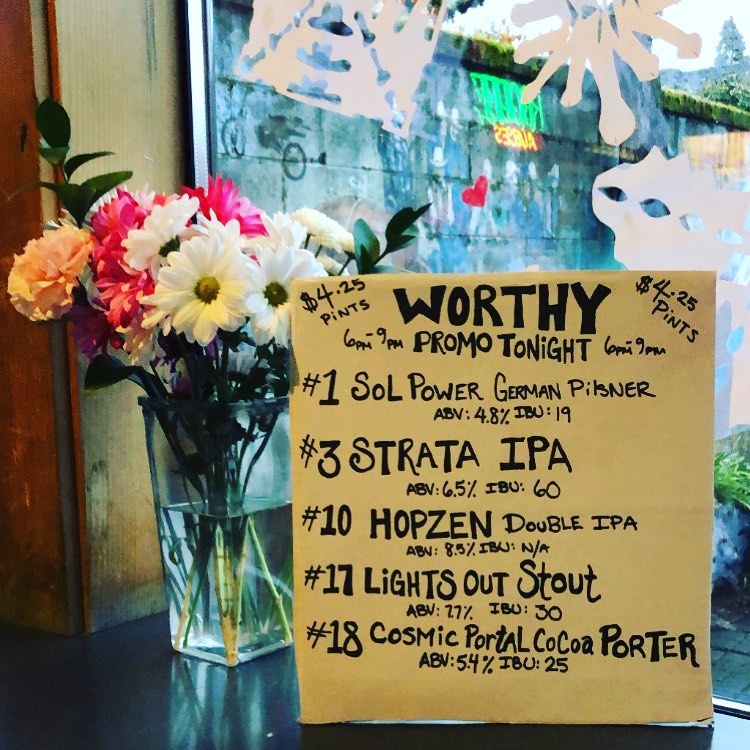 $4.25 PINTS
WORTHY
$4.25 PINTS
6PM-9PM PROMO TONIGHT 6PM-9PM
#1 SOL POWER GERMAN PILSNER
ABV: 4.8% IBU: 19
#3 STRATA IPA
ABV: 6.5% IBU: 60
#10 HOPZEN DOUBLE IPA
ABV: 8.5% IBU: N/A
#17 LIGHTS OUT Stout
ABV: 7.7% IBU: 30
#18 COSMIC PORTAL COCOA PORTER
ABV: 5.4% IBU: 25